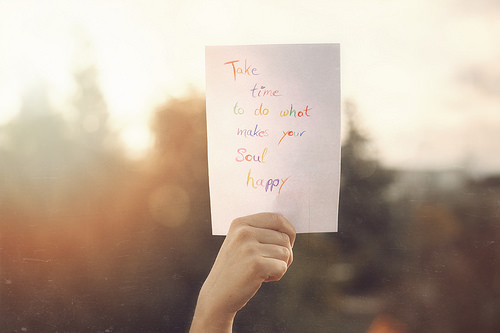 Take
time
to do what
makes your
Soul
happy